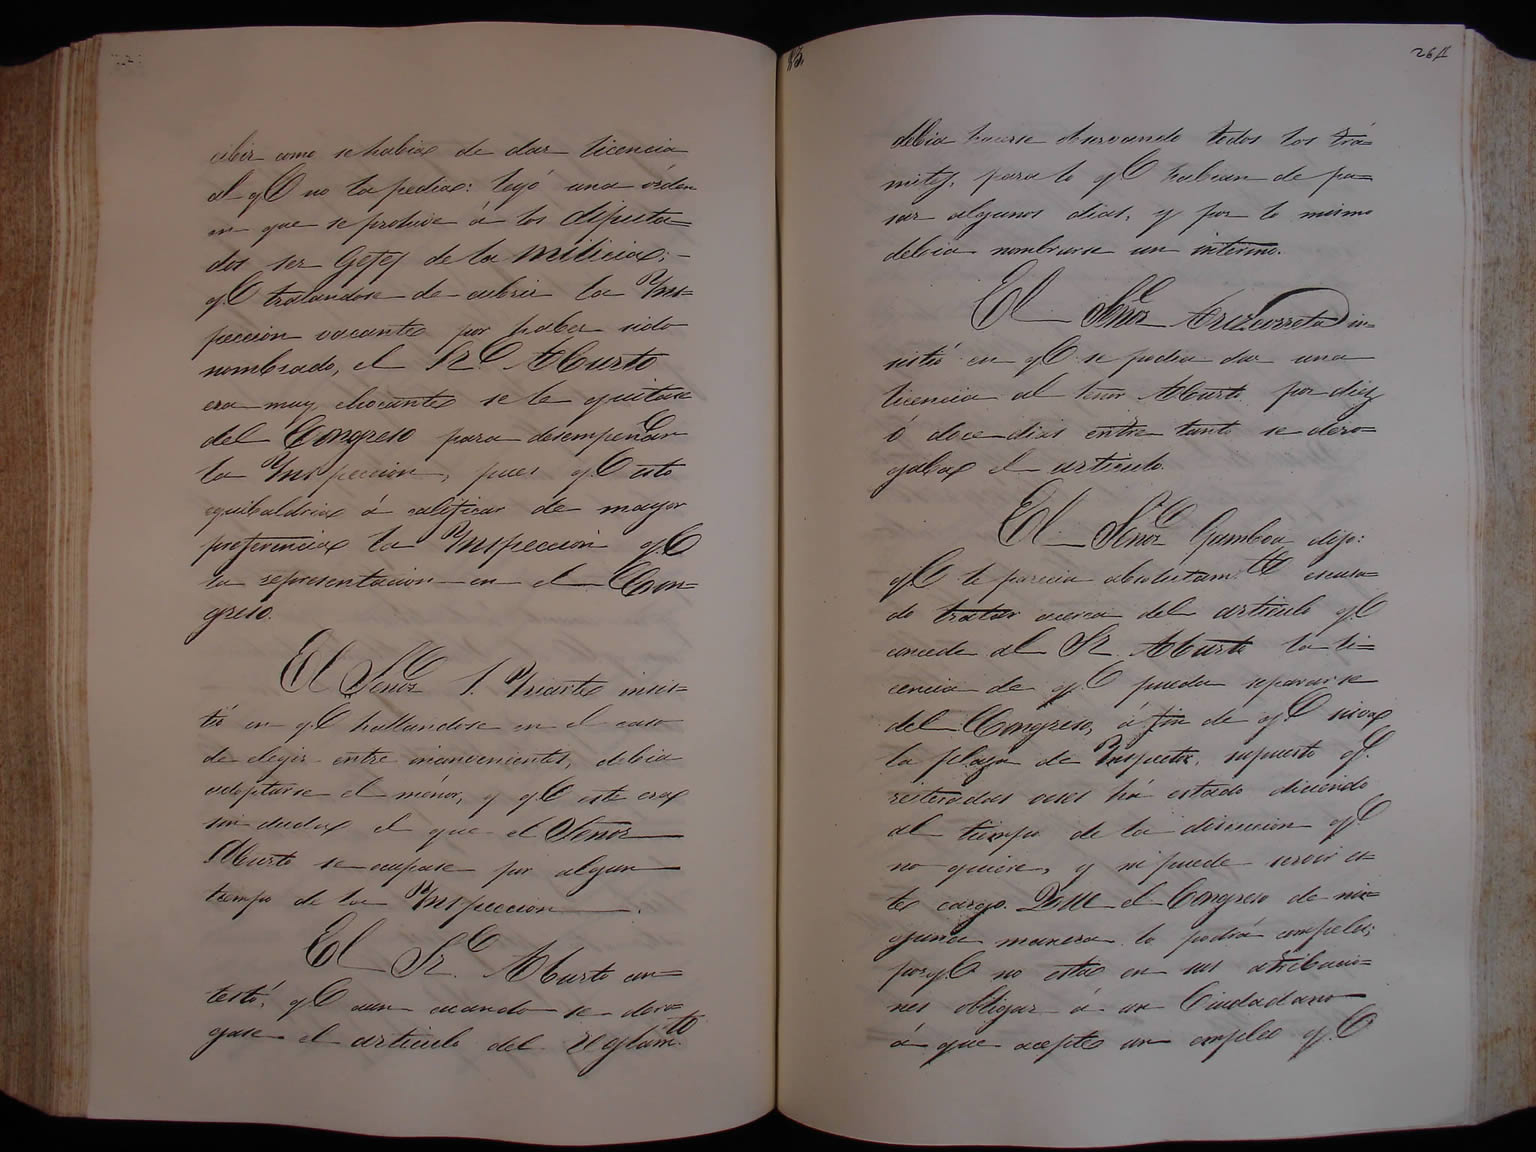 cibir como se habia de dar licencia
al q.e no la pedia: leyó una orden
en que se prohive á los diputa=
dos ser Gefes de la milicia; -
q.e tratandose de cubrir la Yns=
peccion vacante por haber sido
nombrado, el Sr. Aburto
era muy chocante se le quitase
del Congreso para desempeñar
la Ynspeccion, pues q.e esto
equibaldria á calificar de mayor
preferencia la Ynspeccion q.e
la representacion en el Con=
greso.
El Señor Yriarte insis=
tió en q.e hallandose en el caso
de elegir entre inconvenientes, debia
adoptarse el menor, y q.e este era
sin duda el que el Señor
Aburto se ocupase por algun
tiempo de la Ynspeccion.
El Sr. Aburto con=
testó, q.e aun cuando se dero=
gase el articulo del Reglam.to
264
debia hacerse observando todos los trá=
mites, para lo q.e habian de pa=
sar algunos dias, y por lo mismo
debia nombrarse un interino.
El Señor Arizcorreta in=
sistió en q.e se podia dar una
licencia al señor Aburto por diez
ó doce dias entre tanto se dero=
gaba el articulo.
El Señor Gamboa dijo:
q.e le parecia absolutam.te escusa=
do tratar acerca del articulo q.e
concede al Sr. Aburto la li=
cencia de q.e pueda separarse
del Congreso, á fin de q.e sirva
la plaza de Ynspector, supuesto q.e
reiteradas veses há estado diciendo
al tiempo de la discucion q.e
no quiere, y ni puede servir es=
te cargo. Que el Congreso de nin=
guna manera lo podrá compeler;
porq.e no está en sus atribucio=
nes obligar á un Ciudadano
á que acepte un empleo q.e